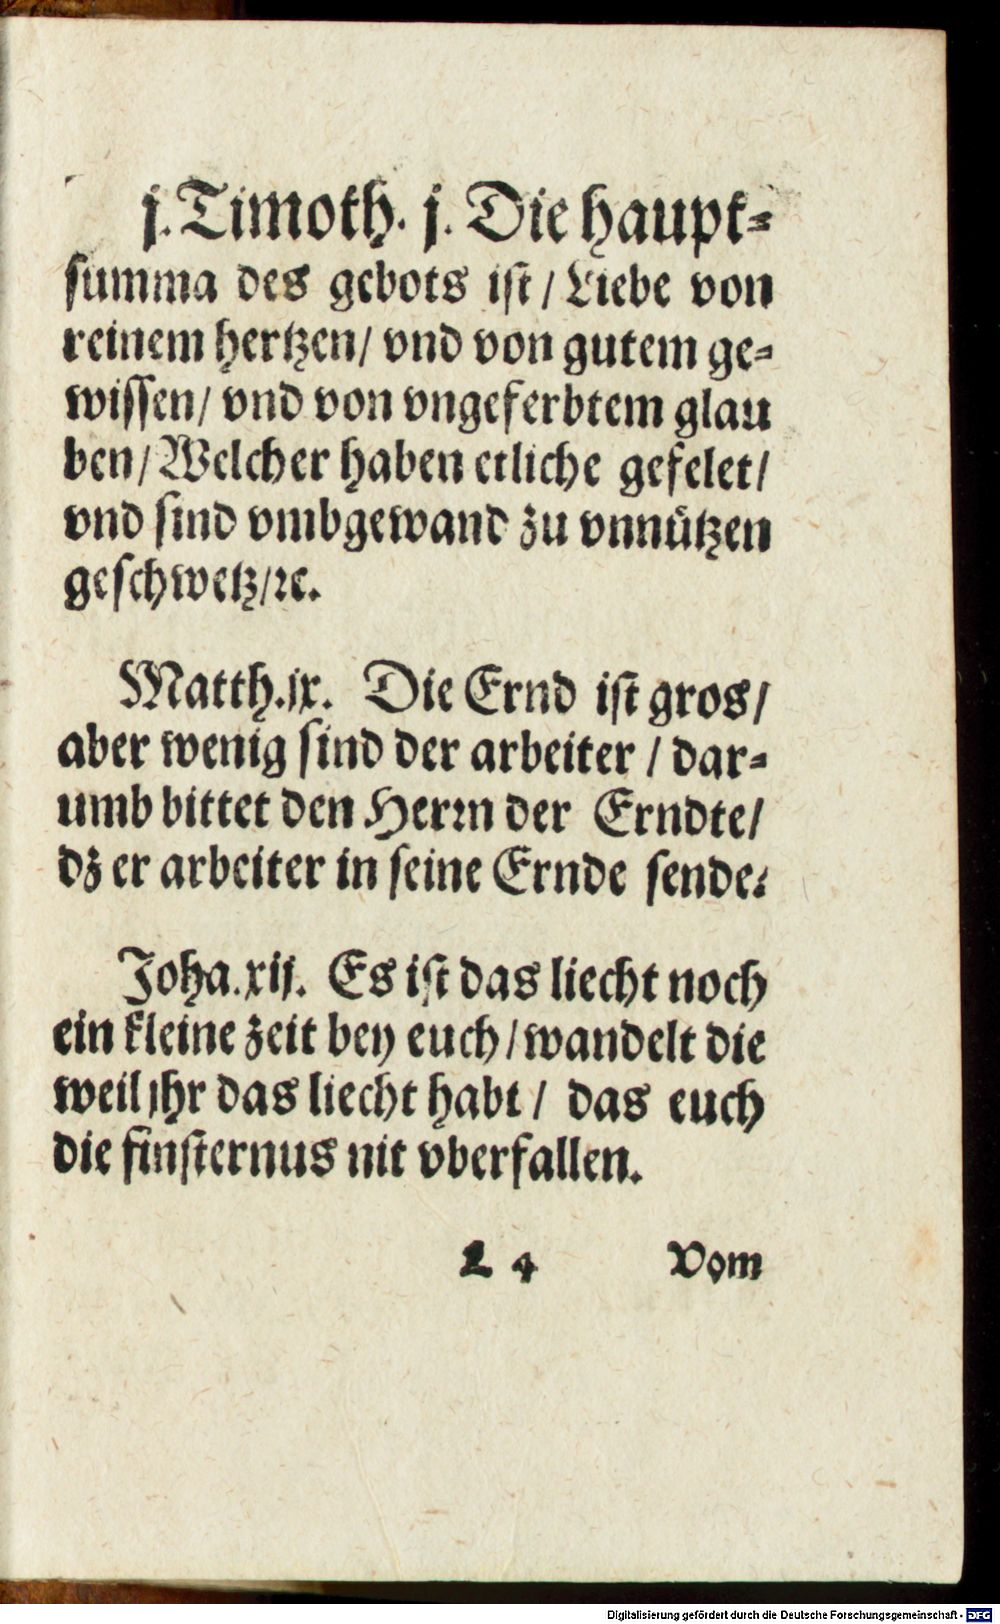 j. Timoth. j. Die haupt⸗
summa des gebots ist / Liebe von
reinem hertzen / vnd von gutem ge⸗
wissen / vnd von vngeferbtem glau
ben / Welcher haben etliche gefelet /
vnd sind vmbgewand zu vnnützen
geschwetz / ꝛc.
Matth. ix. Die Ernd ist gros /
aber wenig sind der arbeiter / dar⸗
umb bittet den Herꝛn der Erndte /
dz er arbeiter in seine Ernde sende.
Joha. xij. Es ist das liecht noch
ein kleine zeit bey euch / wandelt die
weil jhr das liecht habt / das euch
die finsternus nit vberfallen.
L 4 Vom
Digitalisierung gefördert durch die Deutsche Forschungsgemeinschaft - DFG